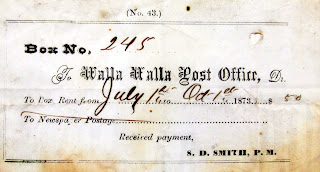 (No. 43.)
Box No. 245
To Walla Walla Post Office, Dr.
To Box Rent from July 1st to Oct 1st 1873. $ 50
To Newspa, or Postage
Received payment,
S. D. SMITH, P. M.